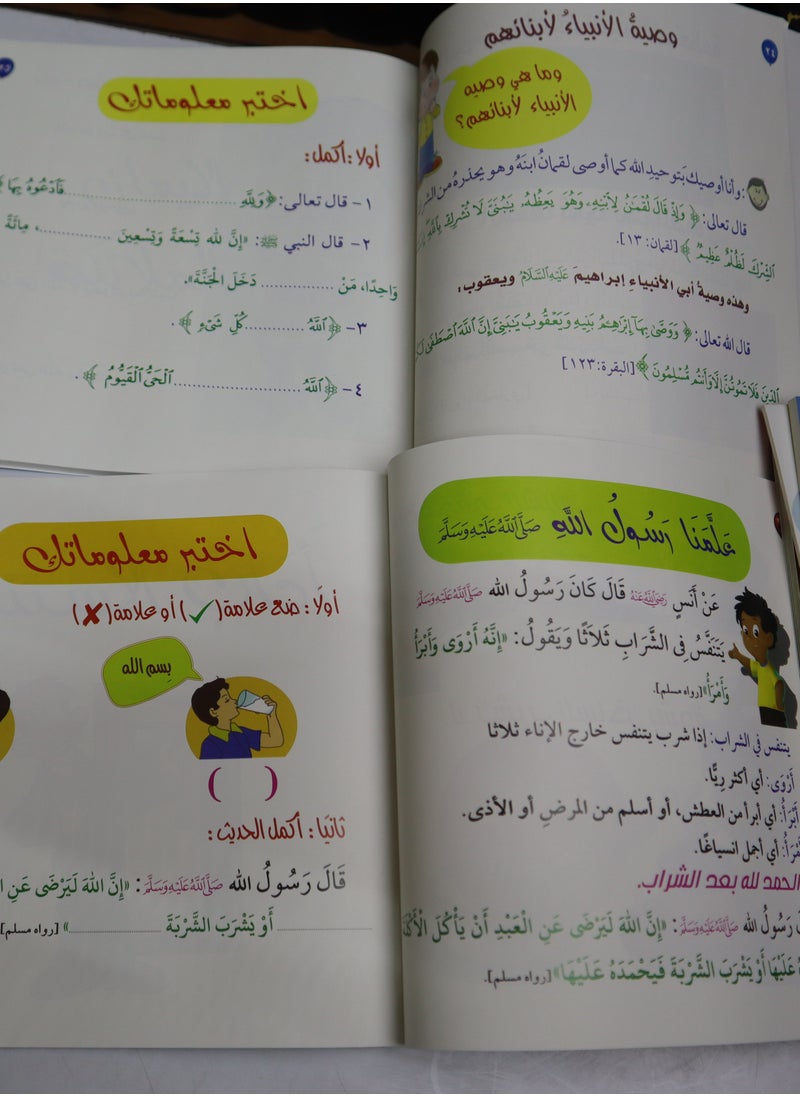 ٢٤
وصيةُ الأنبياءُ لأبنائهم
وما هي وصيه
الأنبياء لأبنائهم؟
: وأنا أوصيك بتوحيد الله كما أوصى لقمانُ ابنهُ وهو يحذرهُ من الشر
قال تعالى: ﴿ وَإِذْ قَالَ لُقْمَٰنُ لِٱبْنِهِۦ وَهُوَ يَعِظُهُۥ يَٰبُنَىَّ لَا تُشْرِكْ بِٱللَّهِ
ٱلشِّرْكَ لَظُلْمٌ عَظِيمٌ ﴾ [لقمان: ١٣].
وهذه وصيةُ أبي الأنبياءِ إبراهيمَ عَلَيْهِ السَّلَامُ ويعقوب:
قال الله تعالى: ﴿ وَوَصَّىٰ بِهَآ إِبْرَٰهِـۧمُ بَنِيهِ وَيَعْقُوبُ يَٰبَنِىَّ إِنَّ ٱللَّهَ ٱصْطَفَىٰ
ٱلدِّينَ فَلَا تَمُوتُنَّ إِلَّا وَأَنتُم مُّسْلِمُونَ ﴾ [البقرة: ١٢٣]
٢٥
اختبر معلوماتك
أولا : أكمل:
١- قال تعالى: ﴿ وَلِلَّهِ .......................... فَٱدْعُوهُ بِهَا
٢- قال النبي ﷺ: «إِنَّ لله تِسْعَةً وَتِسْعِينَ ...............، مِائَةً
وَاحِدًا، مَنْ ............... دَخَلَ الْجَنَّةَ».
٣- ﴿ ٱللَّهُ ............ كُلِّ شَىْءٍ ﴾.
٤- ﴿ ٱللَّهُ .......................... ٱلْحَىُّ ٱلْقَيُّومُ ﴾.
عَلَّمَنَا رَسُولُ اللَّهِ صَلَّى اللَّهُ عَلَيْهِ وَسَلَّمَ
عَنْ أَنَسٍ رَضِيَ اللَّهُ عَنْهُ قَالَ كَانَ رَسُولُ الله صَلَّى اللَّهُ عَلَيْهِ وَسَلَّمَ
يَتَنَفَّسُ فِي الشَّرَابِ ثَلَاثًا وَيَقُولُ: «إِنَّهُ أَرْوَى وَأَبْرَأُ
وَأَمْرَأُ» [رواه مسلم].
يتنفس في الشراب: إذا شرب يتنفس خارج الإناء ثلاثا
أَرْوَى: أي أكثر رِيًّا.
أَبْرَأُ: أي أبرأ من العطش، أو أسلم من المرضِ أو الأذى.
مْرَأُ: أي أجمل انسياغًا.
الحمد لله بعد الشراب.
رَسُولُ الله صَلَّى اللَّهُ عَلَيْهِ وَسَلَّمَ: «إِنَّ اللهَ لَيَرْضَى عَنِ الْعَبْدِ أَنْ يَأْكُلَ الْأَكْ
عَلَيْهَا أَوْ يَشْرَبَ الشَّرْبَةَ فَيَحْمَدَهُ عَلَيْهَا» [رواه مسلم].
اختبر معلوماتك
أولًا : ضع علامة (✓) أو علامة (✗)
بِسم الله
( )
ثانيًا : أكمل الحديث :
قَالَ رَسُولُ الله صَلَّى اللَّهُ عَلَيْهِ وَسَلَّمَ: «إِنَّ اللهَ لَيَرْضَى عَنِ ا
.......................... أَوْ يَشْرَبَ الشَّرْبَةَ .......................... » [رواه مسلم]